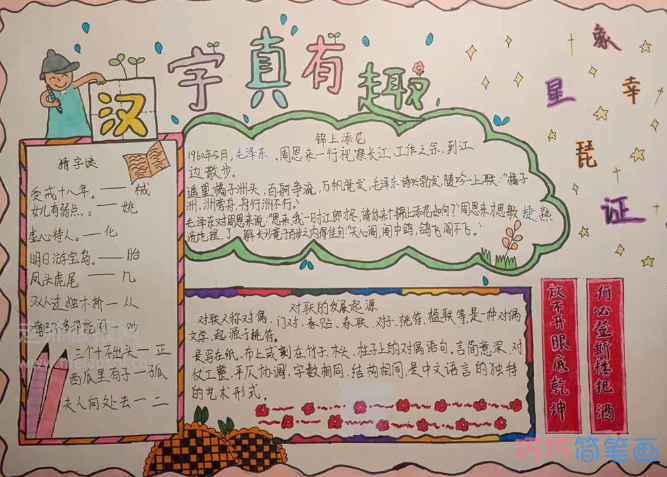 汉字真有趣
猜字谜
受戒十八年。——械
女儿有弱点。——姚
虚心待人。——化
明日游宝岛。——胎
凤头虎尾——几
双人过独木桥——从
——吵
三个十不出头——正
西瓜里有子——孤
夫人何处去——二
锦上添花
1960年5月,毛泽东、周恩来一行视察长江,工作之余,到江
边散步。
遥望橘子洲头,百舸争流,万帆竞发,毛泽东诗兴勃发,随吟一上联:“橘子
洲,洲旁舟,舟行洲不行。”
毛泽东对周恩来说:“恩来,我一时江郎才尽,请你来个锦上添花如何?”周恩来才思敏捷,熟
天心阁,阁中鸽,鸽飞阁不飞。”
对联的发展起源
对联又称对偶、门对、春贴、春联、对子、桃符、楹联等,是一种对偶
文学,起源于桃符。
是写在纸、布上或刻在竹子、木头、柱子上的对偶语句,言简意深,对
仗工整,平仄协调,字数相同,结构相同,是中文语言的独特
的艺术形式。
象
幸
星
琵
证
何必登斯楼把酒
放不开眼底乾坤
巧巧简笔画